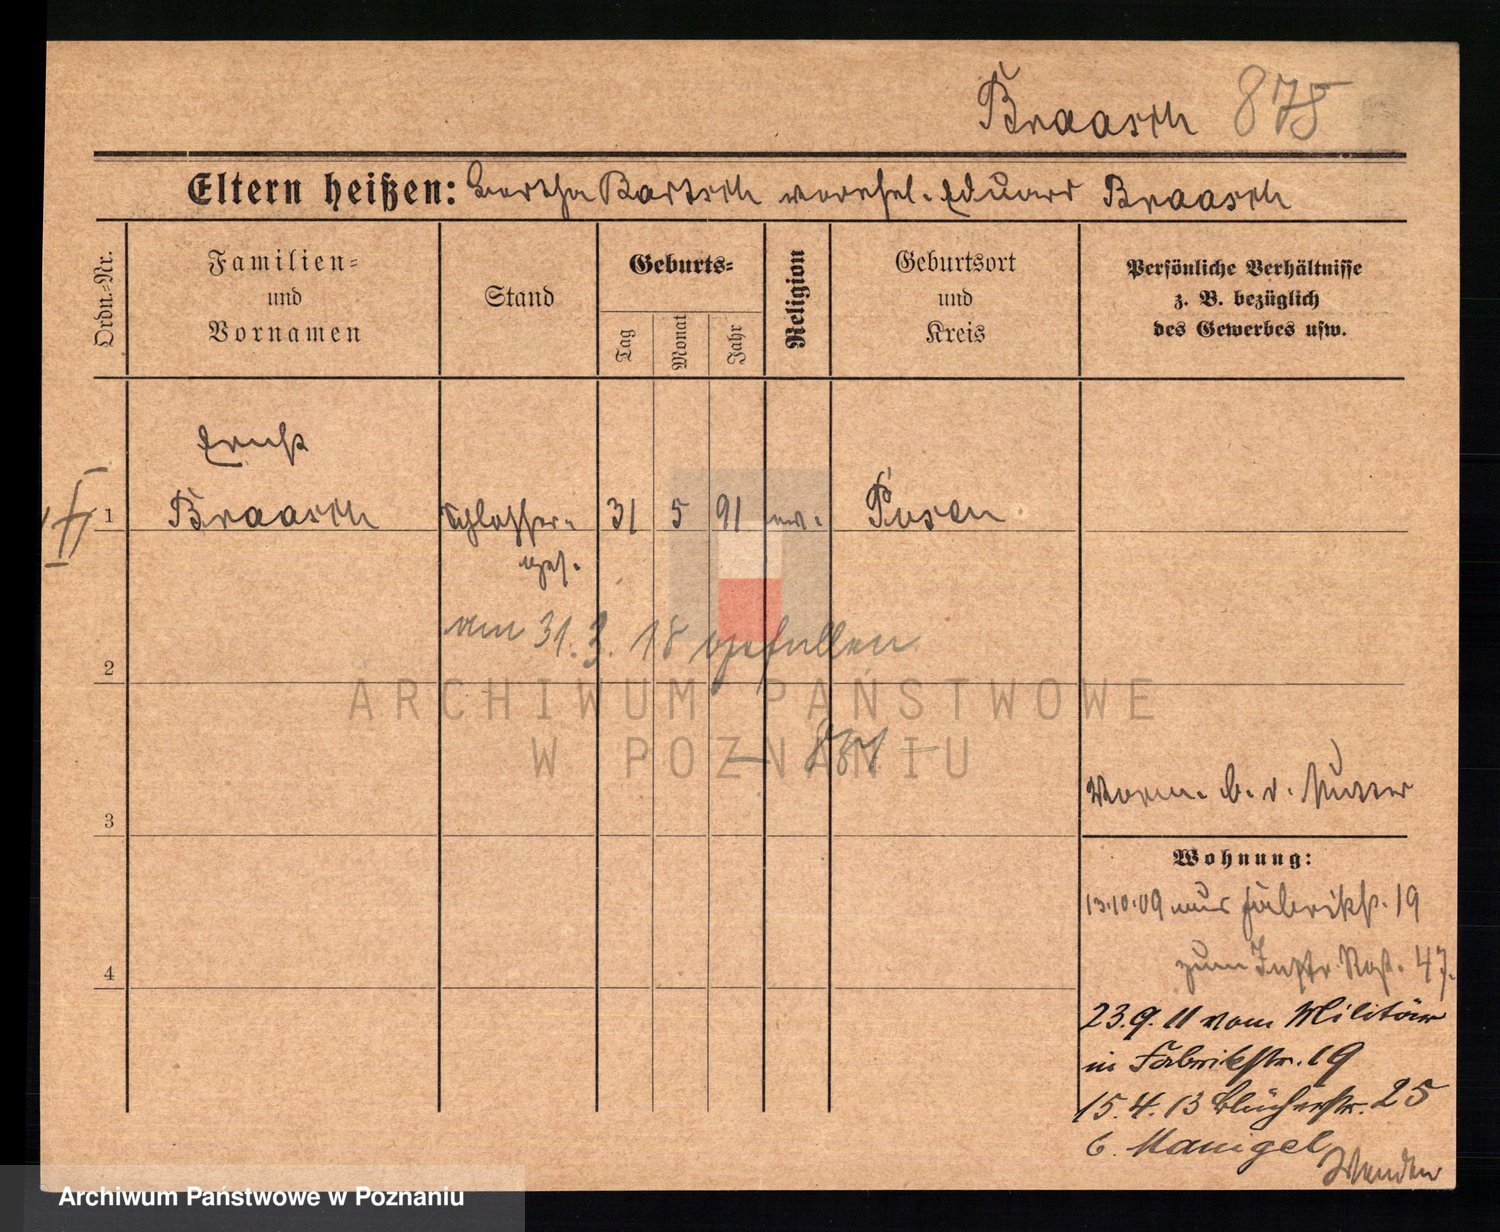 Braasch 878
Eltern heißen: Bertha Bartsch verehel. Eduard Braasch
Ordn.-Nr.
Familien-
und
Vornamen
Stand
Geburts-
Tag
Monat
Jahr
Religion
Geburtsort
und
Kreis
Persönliche Verhältnisse
z. B. bezüglich
des Gewerbes usw.
Ernst
1 Braasch Schlosser- 31 5 91 ev. Posen
ges.
am 31.3.18 gefallen
2
ARCHIWUM PAŃSTWOWE
W POZNANIU
Vorm. b. d. Mutter
3
Wohnung:
13.10.09 aus Fabrikst. 19
zum Inftr. Rgt. 47.
4
23.9.11 vom Militär
in Fabrikstr. 19
15.4.13 Blücherstr. 25
b. Manigel
Archiwum Państwowe w Poznaniu